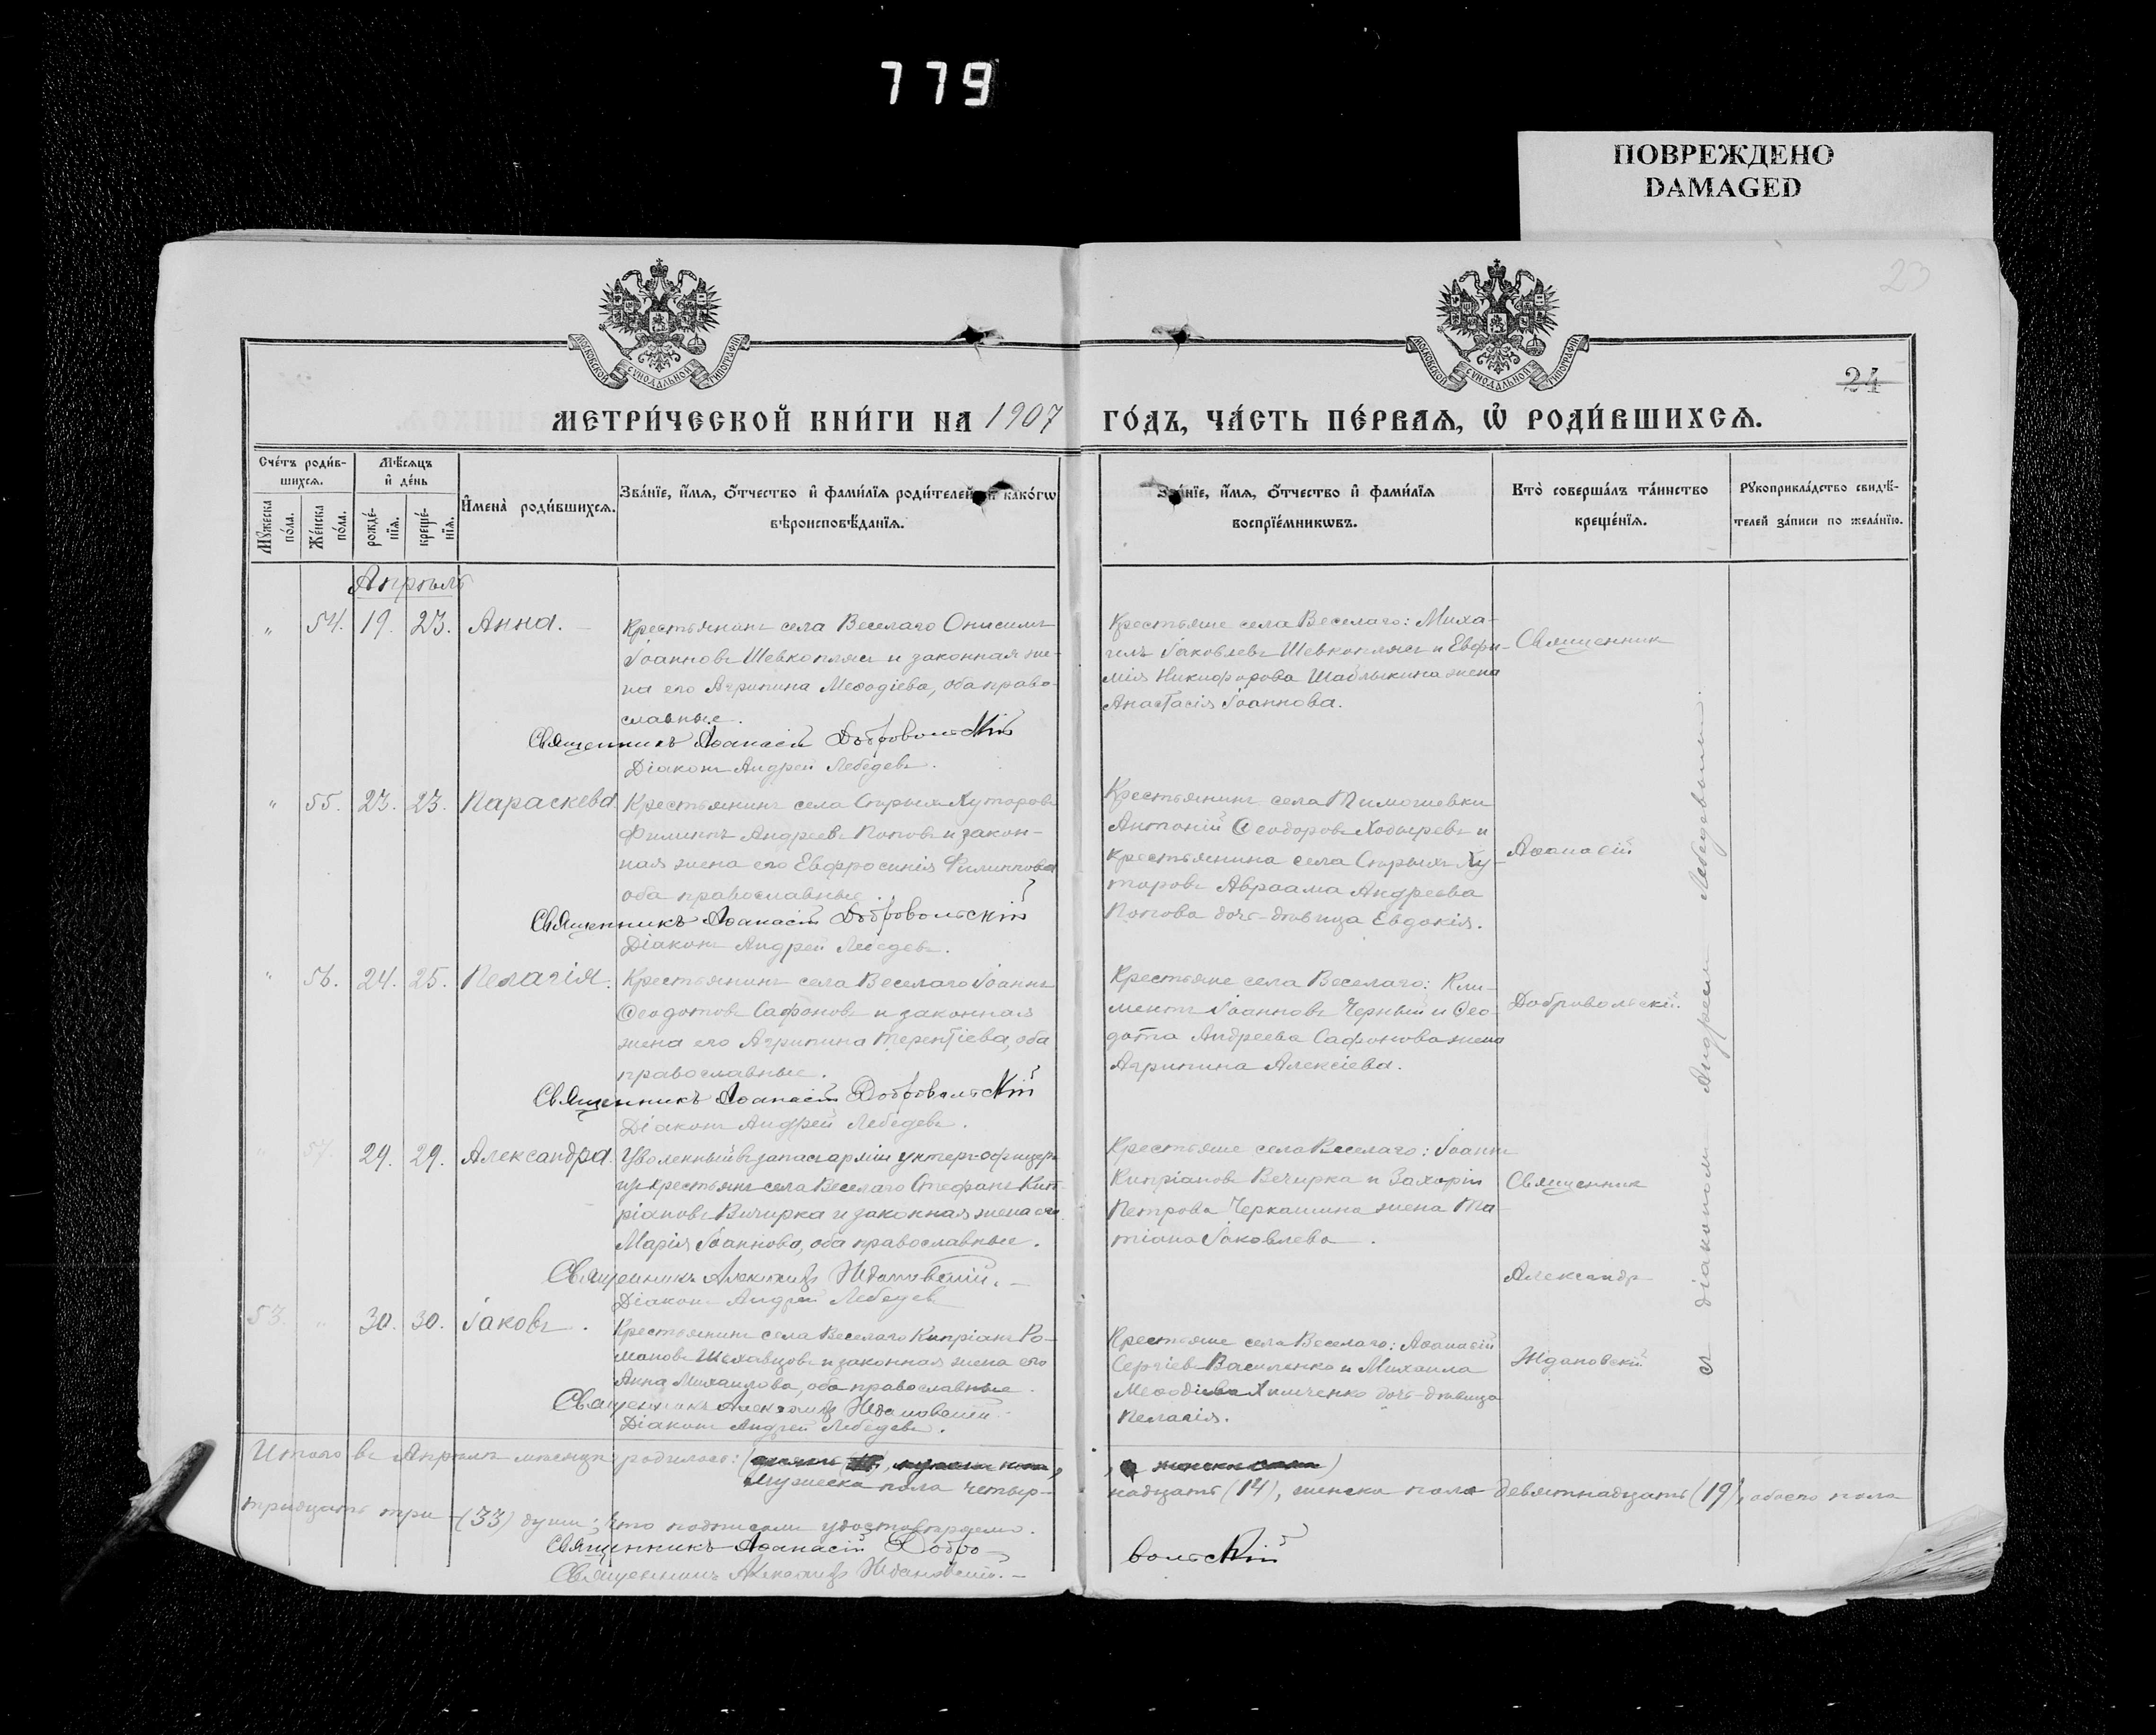 779
ПОВРЕЖДЕНО
DAMAGED
23
МОСКОВСКОЙ СѴНОДАЛЬНОЙ ТИПОГРАФІИ
МОСКОВСКОЙ СѴНОДАЛЬНОЙ ТИПОГРАФІИ
24
МЕТРИ́ЧЕСКОЙ КНИ́ГИ НА 1907 ГО́ДЪ, ЧА́СТЬ ПЕ́РВАѦ, Ѡ҆ РОДИ́ВШИХСѦ.
Сче́тъ роди́в-
шихсѧ.
Мꙋжеска по́ла.
Же́нска по́ла.
Мѣ́сѧцъ
и҆ де́нь
рожде́-
нїѧ.
креще́-
нїѧ.
И҆мена̀ роди́вшихсѧ.
Зва́нїе, и҆́мѧ, ѻ҆́тчество и҆ фами́лїѧ роди́телей, и҆ како́гѡ
вѣроисповѣ́данїѧ.
Зва́нїе, и҆́мѧ, ѻ҆́тчество и҆ фами́лїѧ
воспрїе́мникѡвъ.
Кто̀ соверша́лъ та́инство
креще́нїѧ.
Рꙋкоприкла́дство свидѣ́-
телей за́писи по жела́нїю.
Апрѣль
" 54. 19. 23. Анна.
Крестьянинъ села Веселаго Онисимъ
Іоанновъ Шевкоплясъ и законная же-
на его Агрипина Меѳодіева, оба право-
славные.
Священникъ Аѳанасій Добровольскій
Діаконъ Андрей Лебедевъ.
Крестьяне села Веселаго: Миха-
илъ Іаковлевъ Шевкоплясъ и Евфи-
мія Никифорова Шаблыкина жена
Анастасія Іоаннова.
Священник
" 55. 23. 23. Параскева
Крестьянинъ села Старыхъ Хуторовъ
Филиппъ Андреевъ Поповъ и закон-
ная жена его Евфросинія Филиппова
оба православные.
Священникъ Аѳанасій Добровольскій
Діаконъ Андрей Лебедевъ.
Крестьянинъ села Тимошевки
Антоній Ѳеодоровъ и
крестьянина села Старыхъ Ху-
торовъ Авраама Андреева
Попова дочь-дѣвица Евдокія.
Аѳанасій
" 56. 24. 25. Пелагія.
Крестьянинъ села Веселаго Іоаннъ
Ѳеодотовъ Сафоновъ и законная
жена его Агрипина Терентіева, оба
православные.
Священникъ Аѳанасій Добровольскій
Діаконъ Андрей Лебедевъ.
Крестьяне села Веселаго: Кли-
ментъ Іоанновъ Черный и Ѳео-
дота Андреева Сафонова жена
Агрипина Алексіева.
Добровольскій
" 57. 29. 29. Александра.
Уволенный въ запасъ арміи унтеръ-офицеръ
изъ крестьянъ села Веселаго Стефанъ Кип-
ріановъ Вичирка и законная жена его
Марія Іоаннова, оба православные.
Священникъ Александръ Ждановскій.
Діаконъ Андрей Лебедевъ
Крестьяне села Веселаго: Іоаннъ
Кипріановъ Вечирка и Захарій
Петрова Черкашина жена Та-
тіана Іаковлева.
Священник
Александръ
53. " 30. 30. Іаковъ.
Крестьянинъ села Веселаго Кипріанъ Ро-
мановъ и законная жена его
Анна Михаилова, оба православные.
Священникъ Александръ Ждановскій.
Діаконъ Андрей Лебедевъ.
Крестьяне села Веселаго: Аѳанасій
Сергіевъ Василенко и Михаила
Меѳодіева Химченко дочь-дѣвица
Пелагія.
Ждановскій
съ діакономъ Андреемъ Лебедевымъ.
Итого въ Апрѣлѣ мѣсяцѣ родилось:
мужеска пола четыр-
надцать (14), женска пола девятнадцать (19), обоего пола
тридцать три (33) души; что подписами удостовѣряемъ.
Священникъ Аѳанасій Добро-
вольскій
Священникъ Александръ Ждановскій.